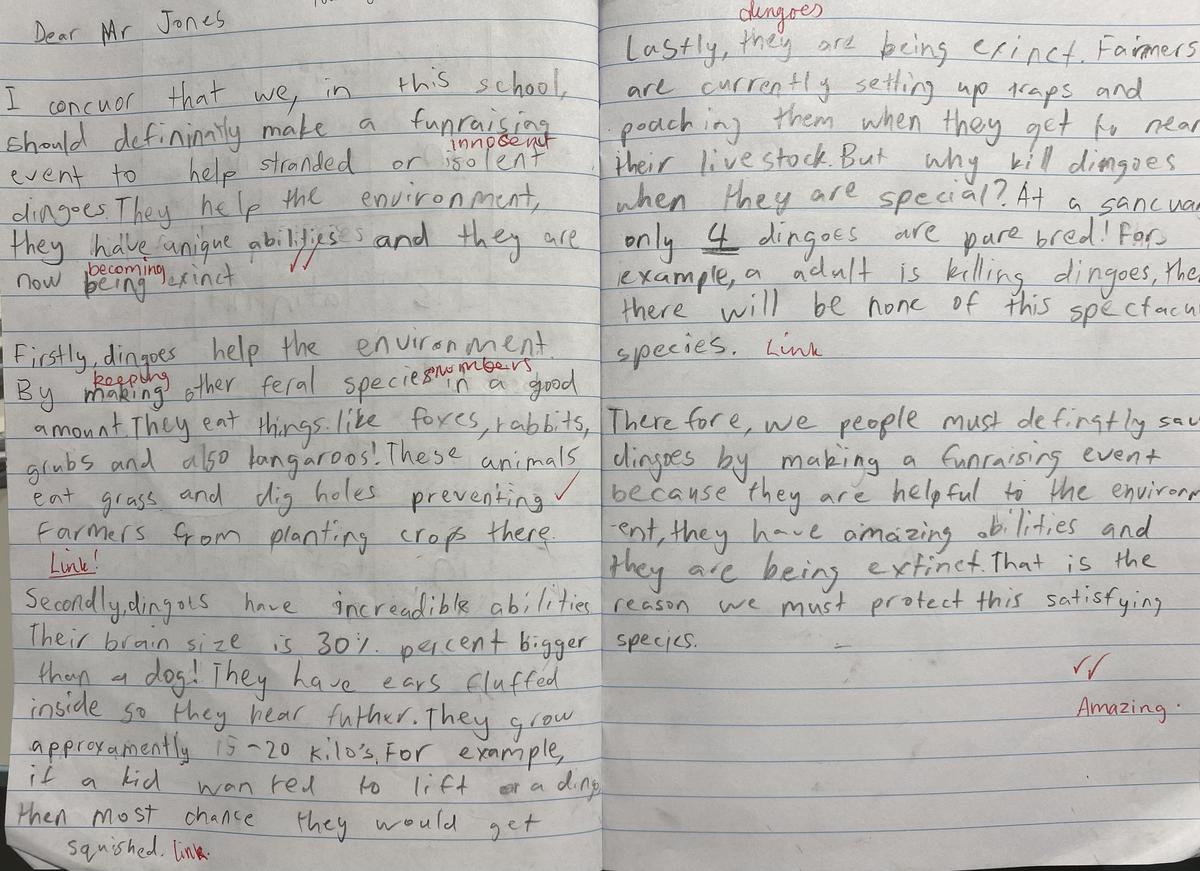 Dear Mr Jones
I concuor that we, in this school,
should defininatly make a funraising
innocent
event to help stranded or isolent
dingoes. They help the environment,
they have unique abilities and they are
becoming
now being exinct
Firstly, dingoes help the environment.
keeping numbers
By making other feral species in a good
amount. They eat things like foxes, rabbits,
grubs and also kangaroos! These animals
eat grass and dig holes preventing
Farmers from planting crops there.
Link!
Secondly, dingoes have increadible abilities
Their brain size is 30% percent bigger
than a dog! They have ears fluffed
inside so they hear futher. They grow
approxamently 15-20 kilo's. For example,
if a kid wanted to lift a ding
then most chance they would get
squished. link.
dingoes
Lastly, they are being exinct. Farmers
are currently setting up traps and
poaching them when they get to near
their livestock. But why kill dingoes
when they are special? At a sancuar
only 4 dingoes are pure bred! For
example, a adult is killing dingoes, the
there will be none of this spectacu
species. Link
Therefore, we people must definatly sav
dingoes by making a funraising event
because they are helpful to the environm
ent, they have amazing abilities and
they are being extinct. That is the
reason we must protect this satisfying
species.
Amazing.